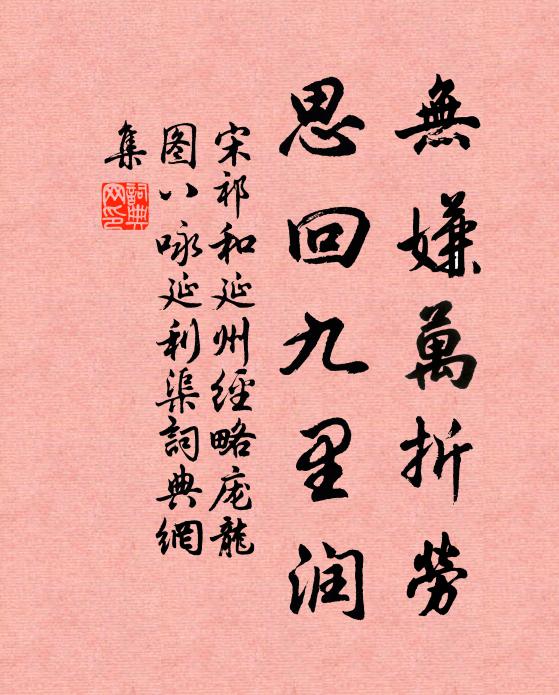 無嫌萬折勞
思回九里润
宋祁和延州經略庞龍
图八咏延利渠詞典網
集
詞典
网印